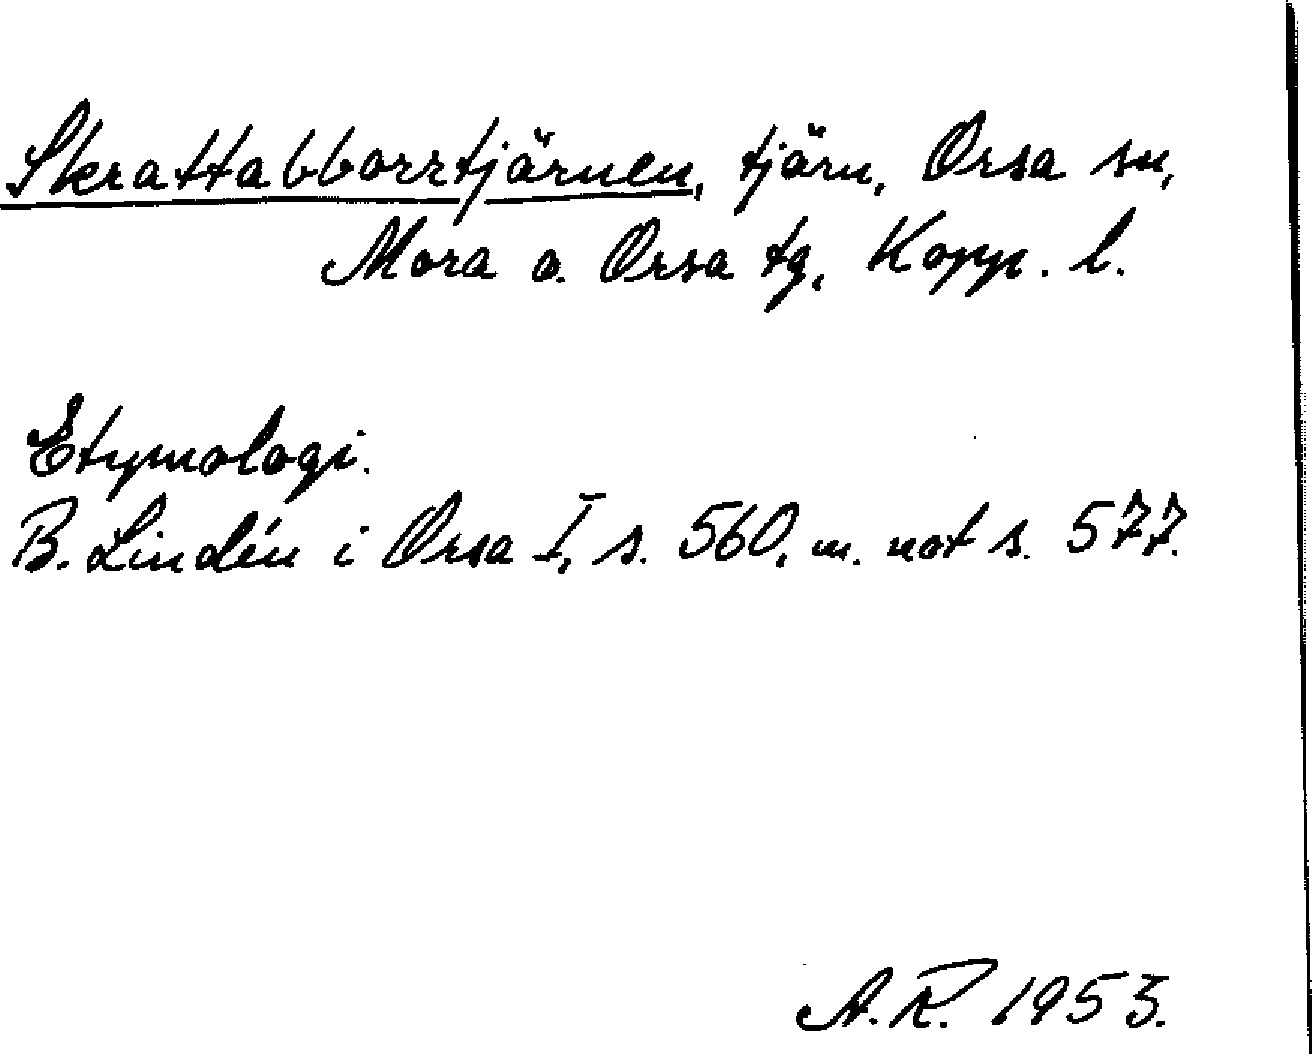 Skrattabborrtjärnen, tjärn, Orsa sn,
Mora o. Orsa tg, Kopp. l.
Etymologi.
B. Lindén i Orsa I, s. 560, m. not s. 577.
A.R. 1953.